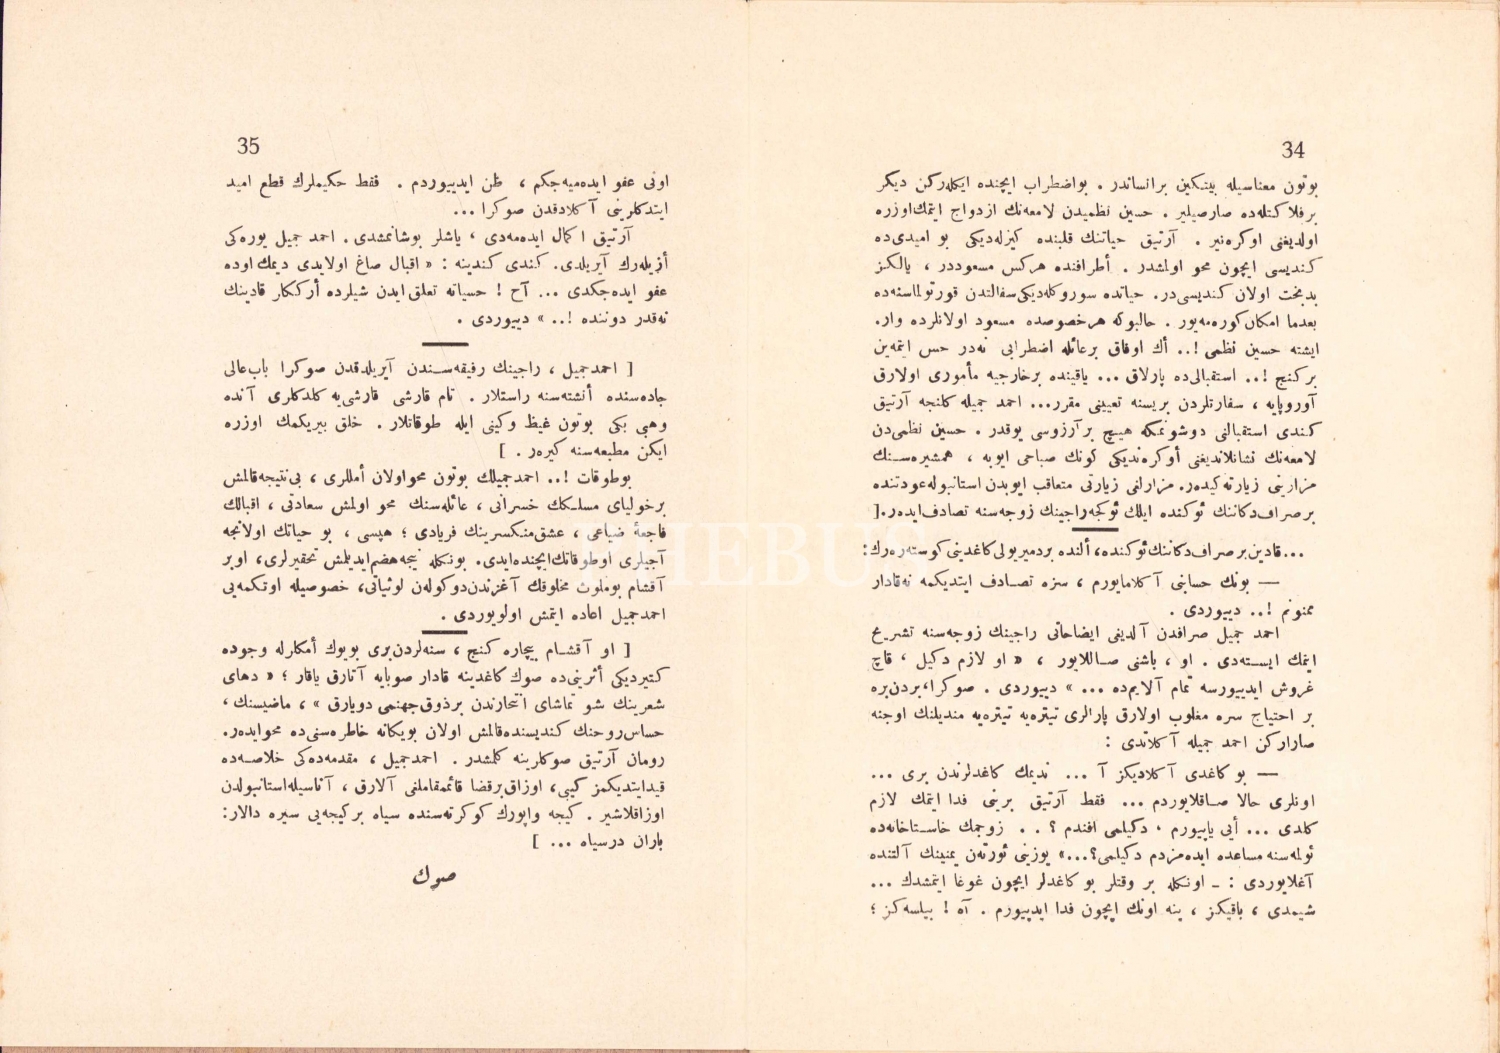 34
بوتون معناسیله بیتکین برانساندر . بواضطراب ایچنده ایکله‌رکن دیکر
برفلاکتله‌ده صارصیلیر . حسین نظمیدن لامعه‌نك ازدواج ایتمك‌اوزره
اولدیغنی اوکره‌نیر . آرتیق حیاتنك قلبنده کیزله‌دیکی بو امیدی‌ده
کندیسی ایچون محو اولمشدر . أطرافنده هرکس مسعوددر ، یالکز
بدبخت اولان کندیسی‌در. حیاتده سوروکله‌دیکی‌سفالتدن قورتولماسنه‌ده
بعدما امکان‌کوره‌مه‌یور . حالبوکه هرخصوصده مسعود اولانلرده وار.
ایشته حسین نظمی !.. أك اوفاق برعائله اضطرابی نه‌در حس ایتمه‌ین
برکنج !.. استقبالی‌ده پارلاق ... یاقینده برخارجیه مأموری اولارق
آوروپایه ، سفارتلردن بریسنه تعیینی مقرر... احمد جمیله کلنجه آرتیق
کندی استقبالنی دوشونمکه هیچ برآرزوسی یوقدر . حسین نظمی‌دن
لامعه‌نك نشانلاندیغنی أوکره‌ندیکی کونك صباحی ایوبه ، همشیره‌سنك
مزارینی زیارته‌کیده‌ر. مزارلغی زیارتی متعاقب ایوبدن استانبوله‌عودتنده
برصراف‌دکاننك ئوکنده ایلك ئوکجه‌راجینك زوجه‌سنه تصادف‌ایده‌ر.[
...قادین‌برصراف‌دکاننك‌ئوکنده، ألنده بردمیریولی‌کاغدینی‌کوسته‌ره‌رك:
— بونك حسابنی آکلامایورم ، سزه تصادف ایتدیکمه نه‌قادار
ممنونم !.. دییوردی .
احمد جمیل صرافدن آلدیغی ایضاحاتی راجینك زوجه‌سنه تشریح
ایتمك ایسته‌دی . او ، باشنی صاللایور ، « او لازم دکیل ، قاچ
غروش ایدییورسه تمام آلایم‌ده ... » دییوردی . صوکرا،بردن‌بره
بر احتیاج سره مغلوب اولارق پارالری تیتره‌یه تیتره‌یه مندیلنك اوجنه
صارارکن احمد جمیله آکلاتدی :
— بو کاغدی آکلادیکز آ ... ندیمك کاغدلرندن بری ...
اونلری حالا صاقلایوردم ... فقط آرتیق برینی فدا ایتمك لازم
کلدی ... أیی یاپیورم ، دکیلمی افندم ؟ . . زوجمك خاستاخانه‌ده
ئولمه‌سنه مساعده ایده‌مزدم دکیلمی؟...» یوزینی ئورتن یمنینك آلتنده
آغلایوردی : ـ اونکله بر وقتلر بو کاغدلر ایچون غوغا ایتمشدك ...
شیمدی ، باقیکز ، ینه اونك ایچون فدا ایدییورم . آه ! بیلسه‌کز ؛
35
اونی عفو ایده‌میه‌جکم ، ظن ایدییوردم . فقط حکیملرك قطع امید
ایتدکلرینی آکلادقدن صوکرا ...
آرتیق اکمال ایده‌مه‌دی ، یاشلر بوشانمشدی. احمد جمیل یوره‌کی
أزیله‌رك آیریلدی. کندی کندینه : « اقبال صاغ اولایدی دیمك اوده
عفو ایده‌جکدی ... آح ! حسیاته تعلق ایدن شیلرده أرککلر قادینك
نه‌قدر دوننده !.. » دییوردی .
[ احمدجمیل ، راجینك رفیقه‌سندن آیریلدقدن صوکرا باب‌عالی
جاده‌سنده أنشته‌سنه راستلار . تام قارشی قارشی‌یه کلدکلری آنده
وهبی بکی بوتون غیظ وکینی ایله طوقاتلار . خلق بیریکمك اوزره
ایکن مطبعه‌سنه کیره‌ر . ]
بوطوقات !.. احمدجمیلك بوتون محواولان أمللری ، بی‌نتیجه‌قالمش
برخولیای مسلکك خسرانی ، عائله‌سنك محو اولمش سعادتی ، اقبالك
فاجعهٔ ضیاعی ، عشق‌منکسرینك فریادی ؛ هپسی ، بو حیاتك اولانجه
آجیلری اوطوقاتك‌ایچنده‌ایدی. بونکله نیجه‌هضم‌ایدیلمش تحقیرلری، اوبر
آقشام بوملوث مخلوقك آغزندن‌دوکولن لوثیاتی، خصوصیله اوتکمه‌یی
احمدجمیل اعاده ایتمش اولویوردی .
[ او آقشام بیچاره کنج ، سنه‌لردن‌بری بویوك أمکلرله وجوده
کتیردیکی أثرینی‌ده صوك کاغدینه قادار صوبایه آتارق یاقار ؛ « دهای
شعرینك شو تماشای انتحارندن برذوق‌جهنمی دویارق » ، ماضیسنك ،
حساس‌روحنك کندیسنده‌قالمش اولان بویکانه خاطره‌سنی‌ده محوایده‌ر.
رومان آرتیق صوکلرینه کلمشدر . احمدجمیل ، مقدمه‌ده‌کی خلاصه‌ده
قیدایتدیکمز کیبی، اوزاق‌برقضا قائممقاملغی آلارق ، آناسیله‌استانبولدن
اوزاقلاشیر . کیجه واپورك کوکرته‌سنده سیاه برکیجه‌یی سیره دالار:
باران درسیاه ... ]
صوك
THEBUS